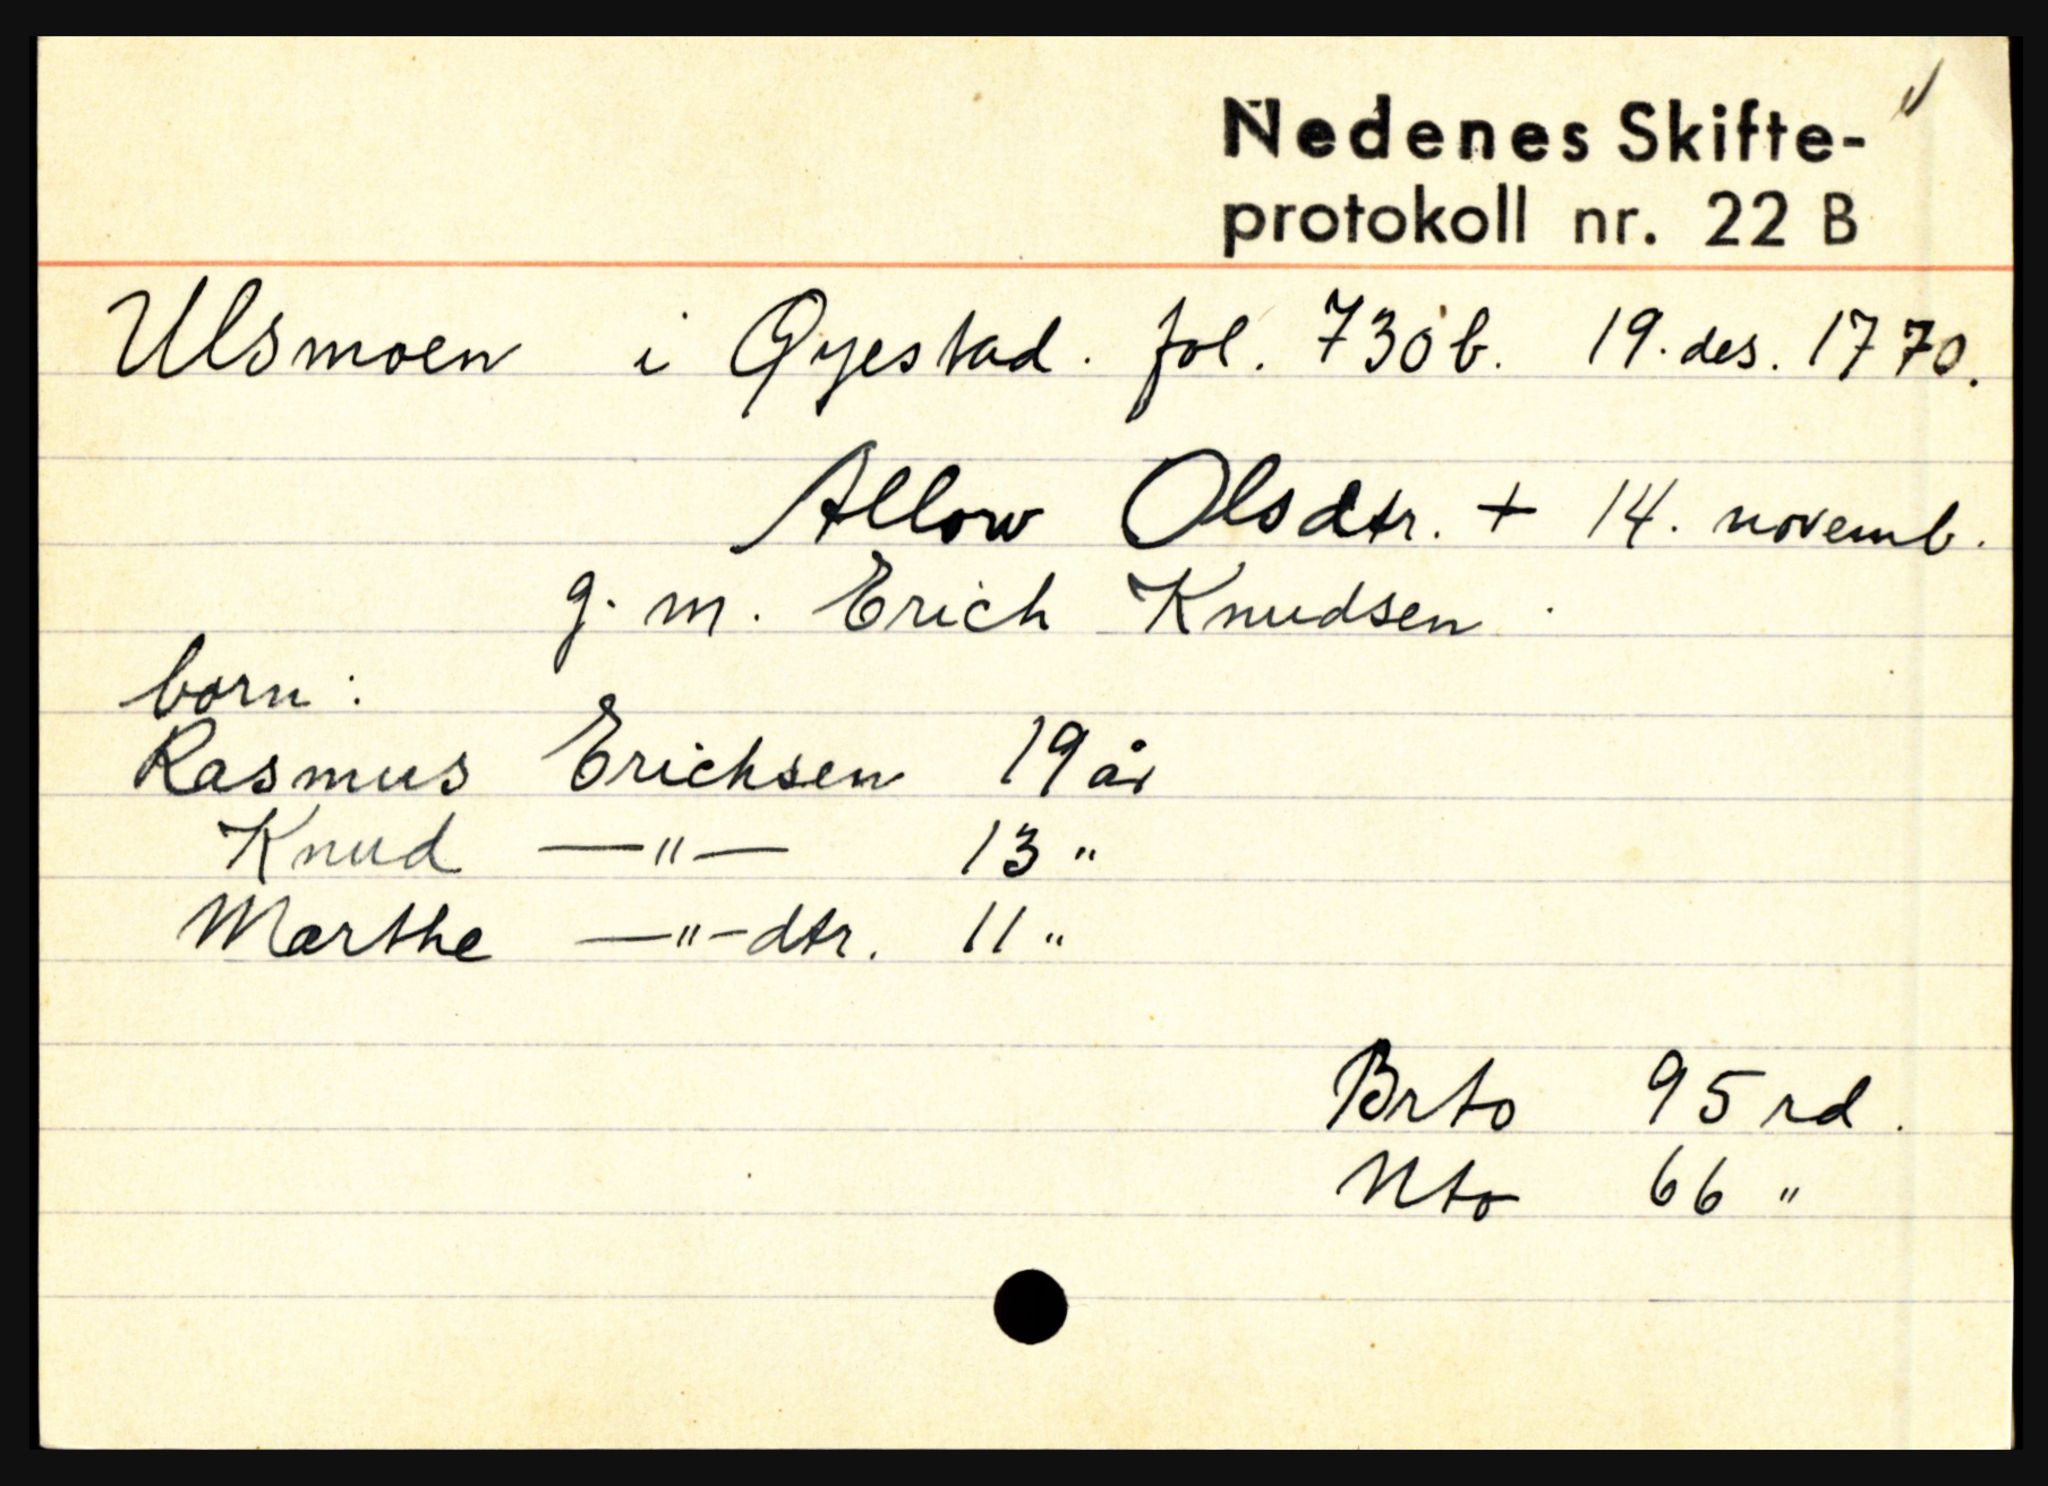 Nedenes Skifte-
protokoll nr. 22 B
Ulsmoen i Øyestad. fol. 730b. 19. des. 1770.
Allow Olsdtr. + 14. novemb.
g. m. Erich Knudsen.
born:
Rasmus Erichsen 19 år
Knud —"— 13 "
Marthe —"— dtr. 11 "
Brto 95 rd.
Nto 66 "